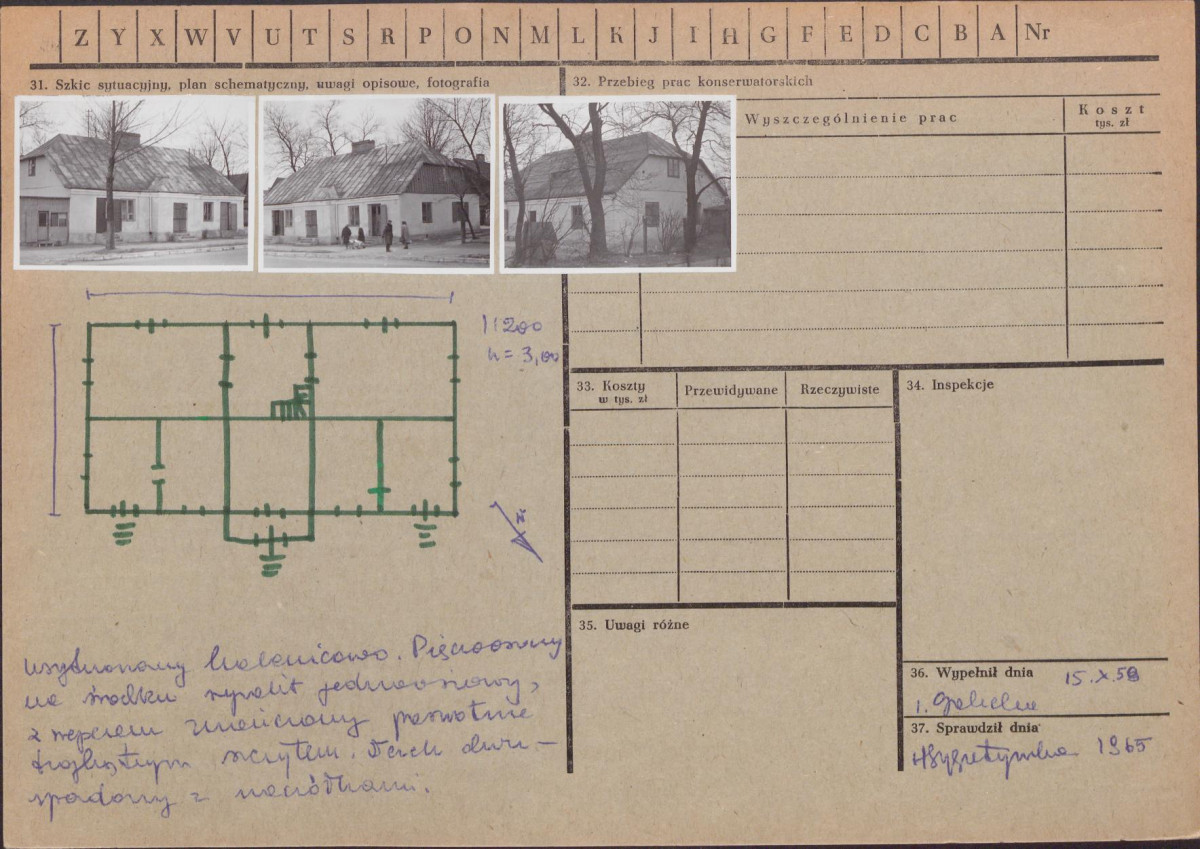 Z Y X W V U T S R P O N M L K J I H G F E D C B A Nr
31. Szkic sytuacyjny, plan schematyczny, uwagi opisowe, fotografia
1:200
h = 3,00
N.
usytuowany kalenicowo. Pięcioosiowy
na środku ryzalit jednoosiowy,
zwieńczony
trójkątnym szczytem. Dach dwu-
spadowy z naczółkami.
32. Przebieg prac konserwatorskich
Wyszczególnienie prac
Koszt
tys. zł
33. Koszty
w tys. zł
Przewidywane
Rzeczywiste
34. Inspekcje
35. Uwagi różne
36. Wypełnił dnia 15.X.59
37. Sprawdził dnia
1965